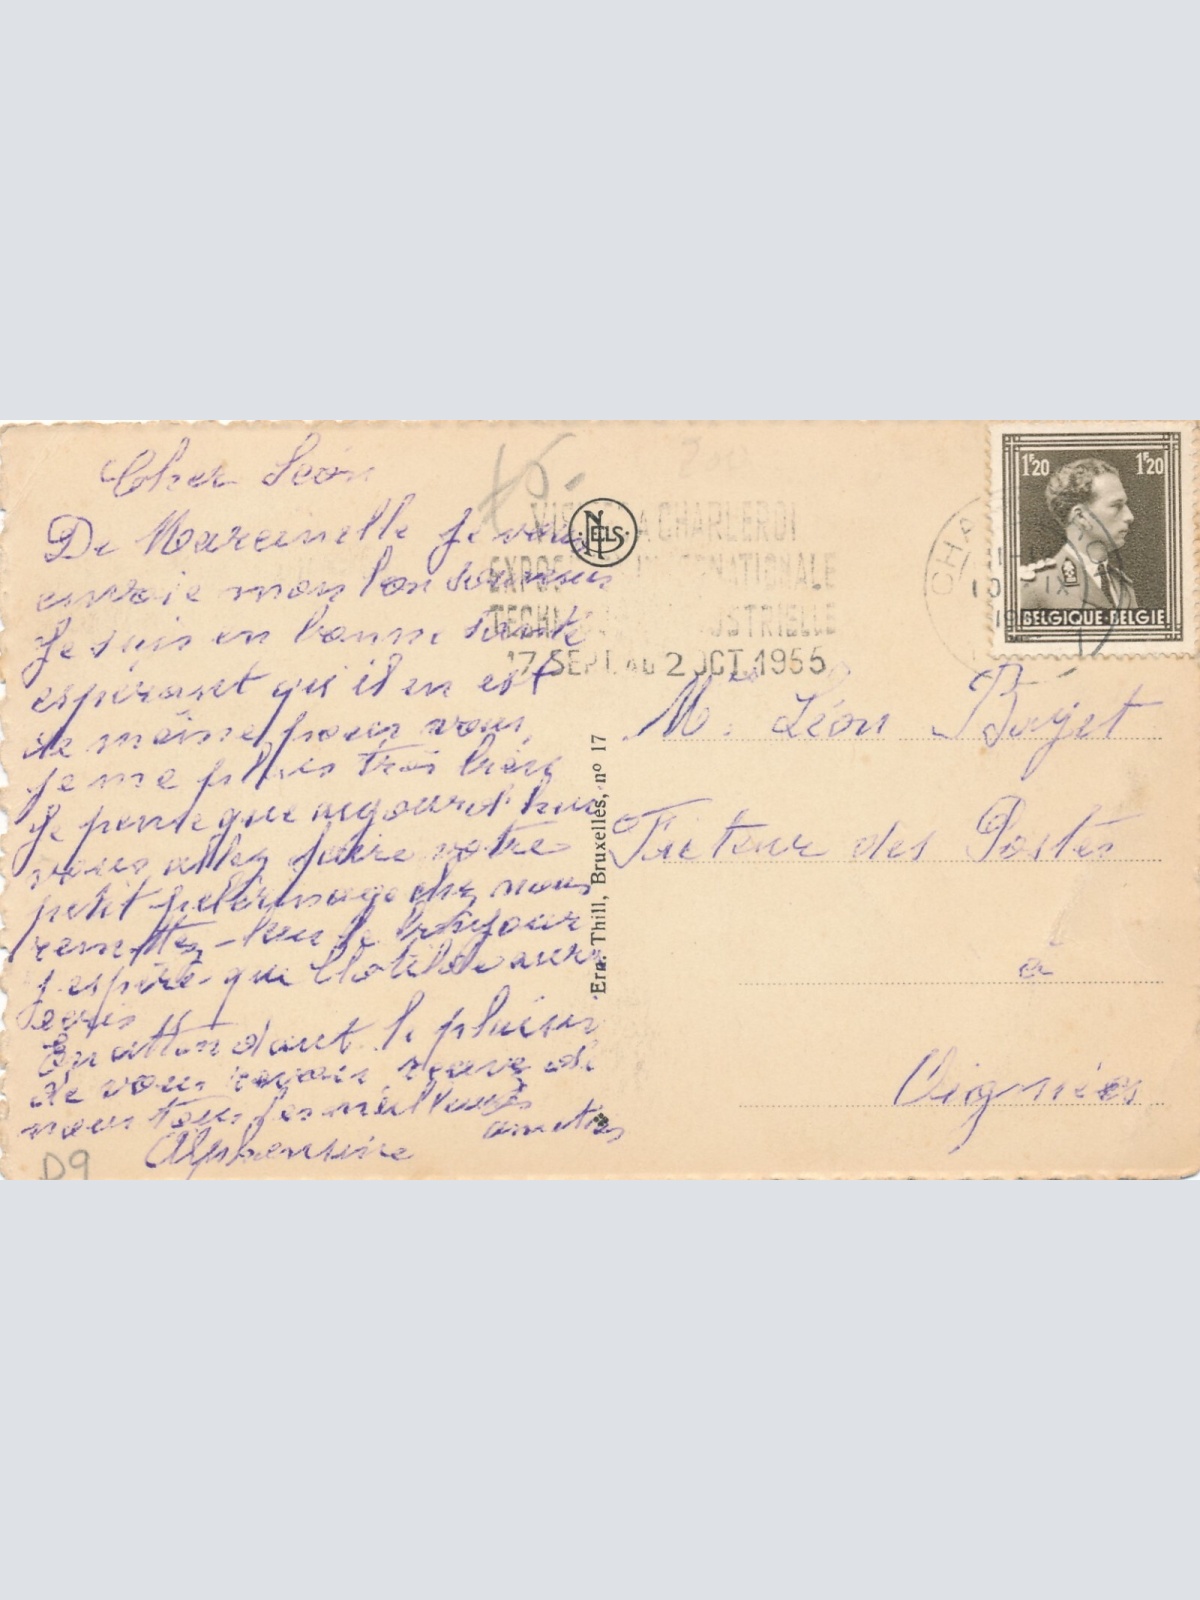 Cher Léon
De Marcinelle je vous
envoie mon bon souvenir
Je suis en bonne santé
espérant qu'il en est
de même pour vous,
je me plais très bien
Je pense que aujourd'hui
vous allez faire votre
petit pelérinage chez nous
remettez-leur le bonjour
j'espère que Clotilde aura
En attendant le plaisir
de vous revoir recevez de
nous tous les meilleures
amitiés
Alphonsine
D9
NELS
Ern. Thill, Bruxelles, nº 17
VISITEZ A CHARLEROI
EXPOSITION INTERNATIONALE
TECHNIQUE INDUSTRIELLE
17 SEPT. AU 2 OCT. 1955
1F20 1F20
BELGIQUE-BELGIE
CHA
10 IX
19
Mr. Léon
Facteur des Postes
à
Oignies